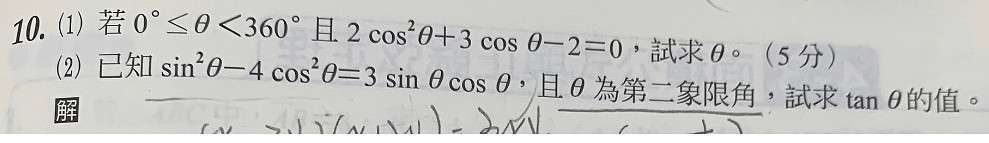 10. (1) 若 0°≤θ<360° 且 2 cos²θ+3 cos θ−2=0，試求 θ。（5 分）
(2) 已知 sin²θ−4 cos²θ=3 sin θ cos θ，且 θ 為第二象限角，試求 tan θ 的值。
解